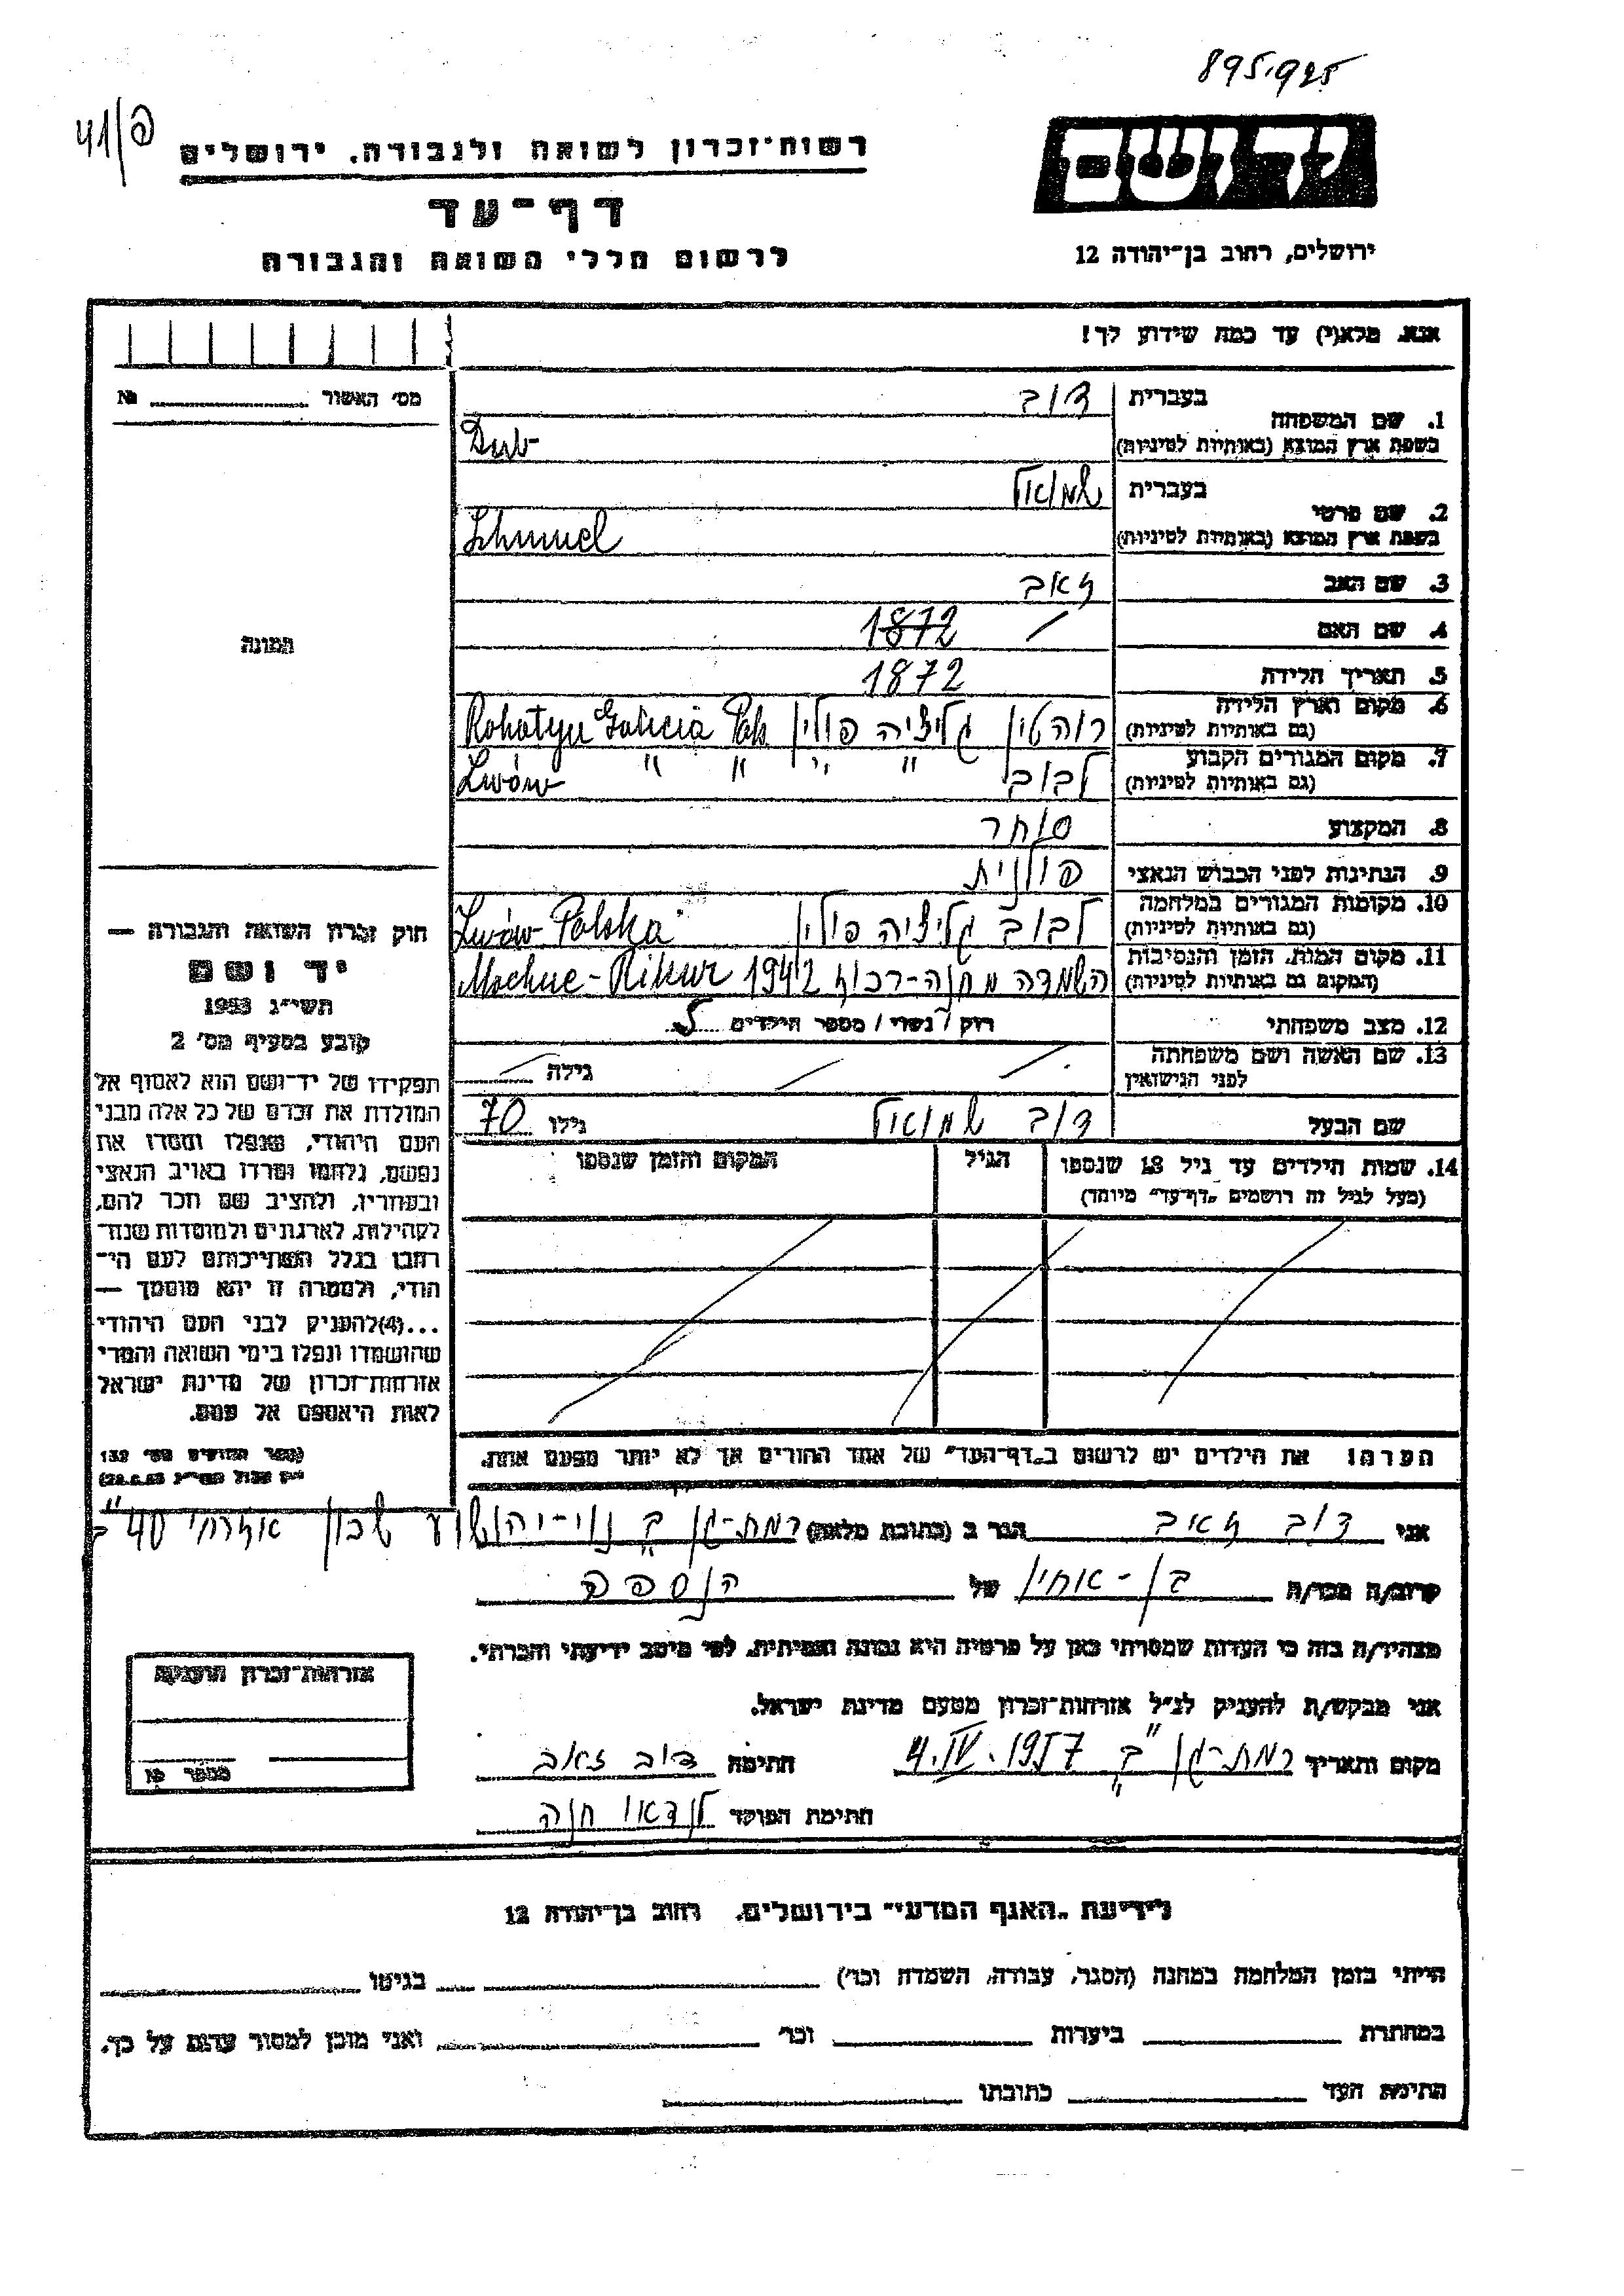 895,925
41/פ
יד ושם
רשות־זכרון לשואה ולגבורה. ירושלים
דף־עד
לרשום חללי השואה והגבורה
ירושלים, רחוב בן־יהודה 12
אנא. מלא(י) עד כמה שידוע לך!
מס׳ האשור №
בעברית דוב
1. שם המשפחה
בשפת ארץ המוצא (באותיות לטיניות) Dub
בעברית שמואל
2. שם פרטי
בשפת ארץ המוצא (באותיות לטיניות) Schmuel
3. שם האב זאב
4. שם האם / 1872
5. תאריך הלידה 1872
6. מקום וארץ הלידה
(גם באותיות לטיניות) רוהטין גליציה פולין Rohatyn Galicia Pols
7. מקום המגורים הקבוע
(גם באותיות לטיניות) לבוב " " " " Lwów
8. המקצוע סוחר
9. הנתינות לפני הכבוש הנאצי פולנית
10. מקומות המגורים במלחמה
(גם באותיות לטיניות) לבוב גליציה פולין Lwów Polska
11. מקום המות. הזמן והנסיבות
(המקום גם באותיות לטיניות) השמדה מחנה- 1942
12. מצב משפחתי רוק / נשוי / מספר הילדים 5
13. שם האשה ושם משפחתה
לפני הנישואין גילה
שם הבעל דוב שמואל גילו 70
14. שמות הילדים עד גיל 18 שנספו הגיל המקום והזמן שנספו
(מעל לגיל זה רושמים „דף־עד״ מיוחד)
הערה! את הילדים יש לרשום ב„דף־העד״ של אחד ההורים אך לא יותר מפעם אחת.
התמונה
חוק זכרון השואה והגבורה —
יד ושם
תשי״ג 1953
קובע בסעיף מס׳ 2
תפקידו של יד־ושם הוא לאסוף אל
המולדת את זכרם של כל אלה מבני
העם היהודי, שנפלו ומסרו את
נפשם, נלחמו ומרדו באויב הנאצי
ובעוזריו, ולהציב שם וזכר להם,
לקהילות, לארגונים ולמוסדות שנח־
רבו בגלל השתייכותם לעם הי־
הודי, ולמטרה זו יהא מוסמך —
...(4)להעניק לבני העם היהודי
שהושמדו ונפלו בימי השואה והמרי
אזרחות־זכרון של מדינת ישראל
לאות היאספם אל עמם.
(ספר החוקים מס׳ 132
אני דוב זאב הגר ב (כתובת מלאה) רמת-גן ב׳ נוי-יהושע שכון אזרחי 40 ב"
קרוב/ה מכר/ה בן-אחיו של הנספה
מצהיר/ה בזה כי העדות שמסרתי כאן על פרטיה היא נכונה ואמיתית. לפי מיטב ידיעתי והכרתי.
אני מבקש/ת להעניק לנ״ל אזרחות־זכרון מטעם מדינת ישראל.
מקום ותאריך רמת-גן ב" 4.IV.1957 חתימה דוב זאב
חתימת הפוקד לנדאו חנה
אזרחות־זכרון הוענקה
מספר №
לידיעת „האגף המדעי״ בירושלים. רחוב בן־יהודה 12
הייתי בזמן המלחמה במחנה (הסגר, עבודה, השמדה וכו׳) בגיטו
במחתרת ביערות וכו׳ ואני מוכן למסור עדות על כך.
חתימת העד כתובתו